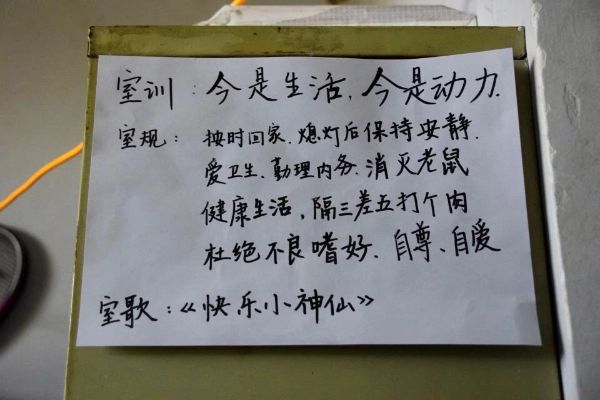 室训：今是生活，今是动力.
室规：按时回家.熄灯后保持安静.
爱卫生、勤理内务.消灭老鼠
健康生活，隔三差五打个肉
杜绝不良嗜好、自尊、自爱
室歌：《快乐小神仙》